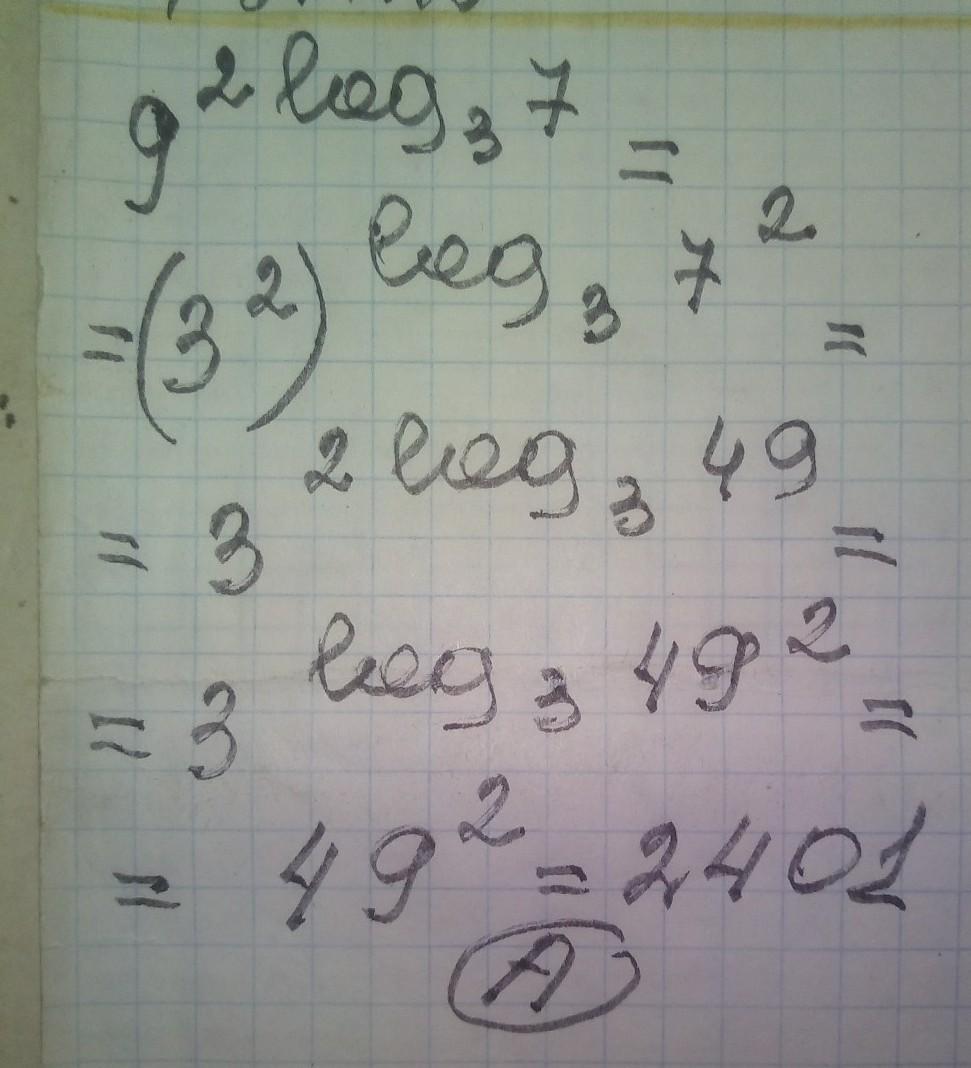 9^{2 log_3 7} =
= (3^2)^{log_3 7^2} =
= 3^{2 log_3 49} =
= 3^{log_3 49^2} =
= 49^2 = 2401
A